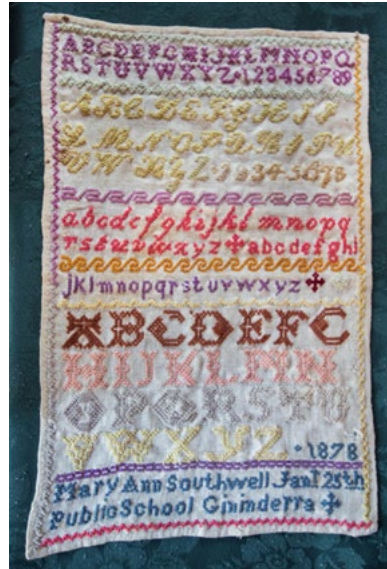 ABCDEFGHIJKLMNOPQ
RSTUVWXYZ·123456789
ABCDEFGHIJ
LMNOPQRSTUV
WXYZ 12345678
abcdefghijklmnopq
rstuvwxyz✤abcdefghi
jklmnopqrstuvwxyz✤
ABCDEFG
HIJKLMN
OPQRSTU
VWXYZ · 1878
Mary Ann Southwell Jant 25th
Public School Gininderra ✤